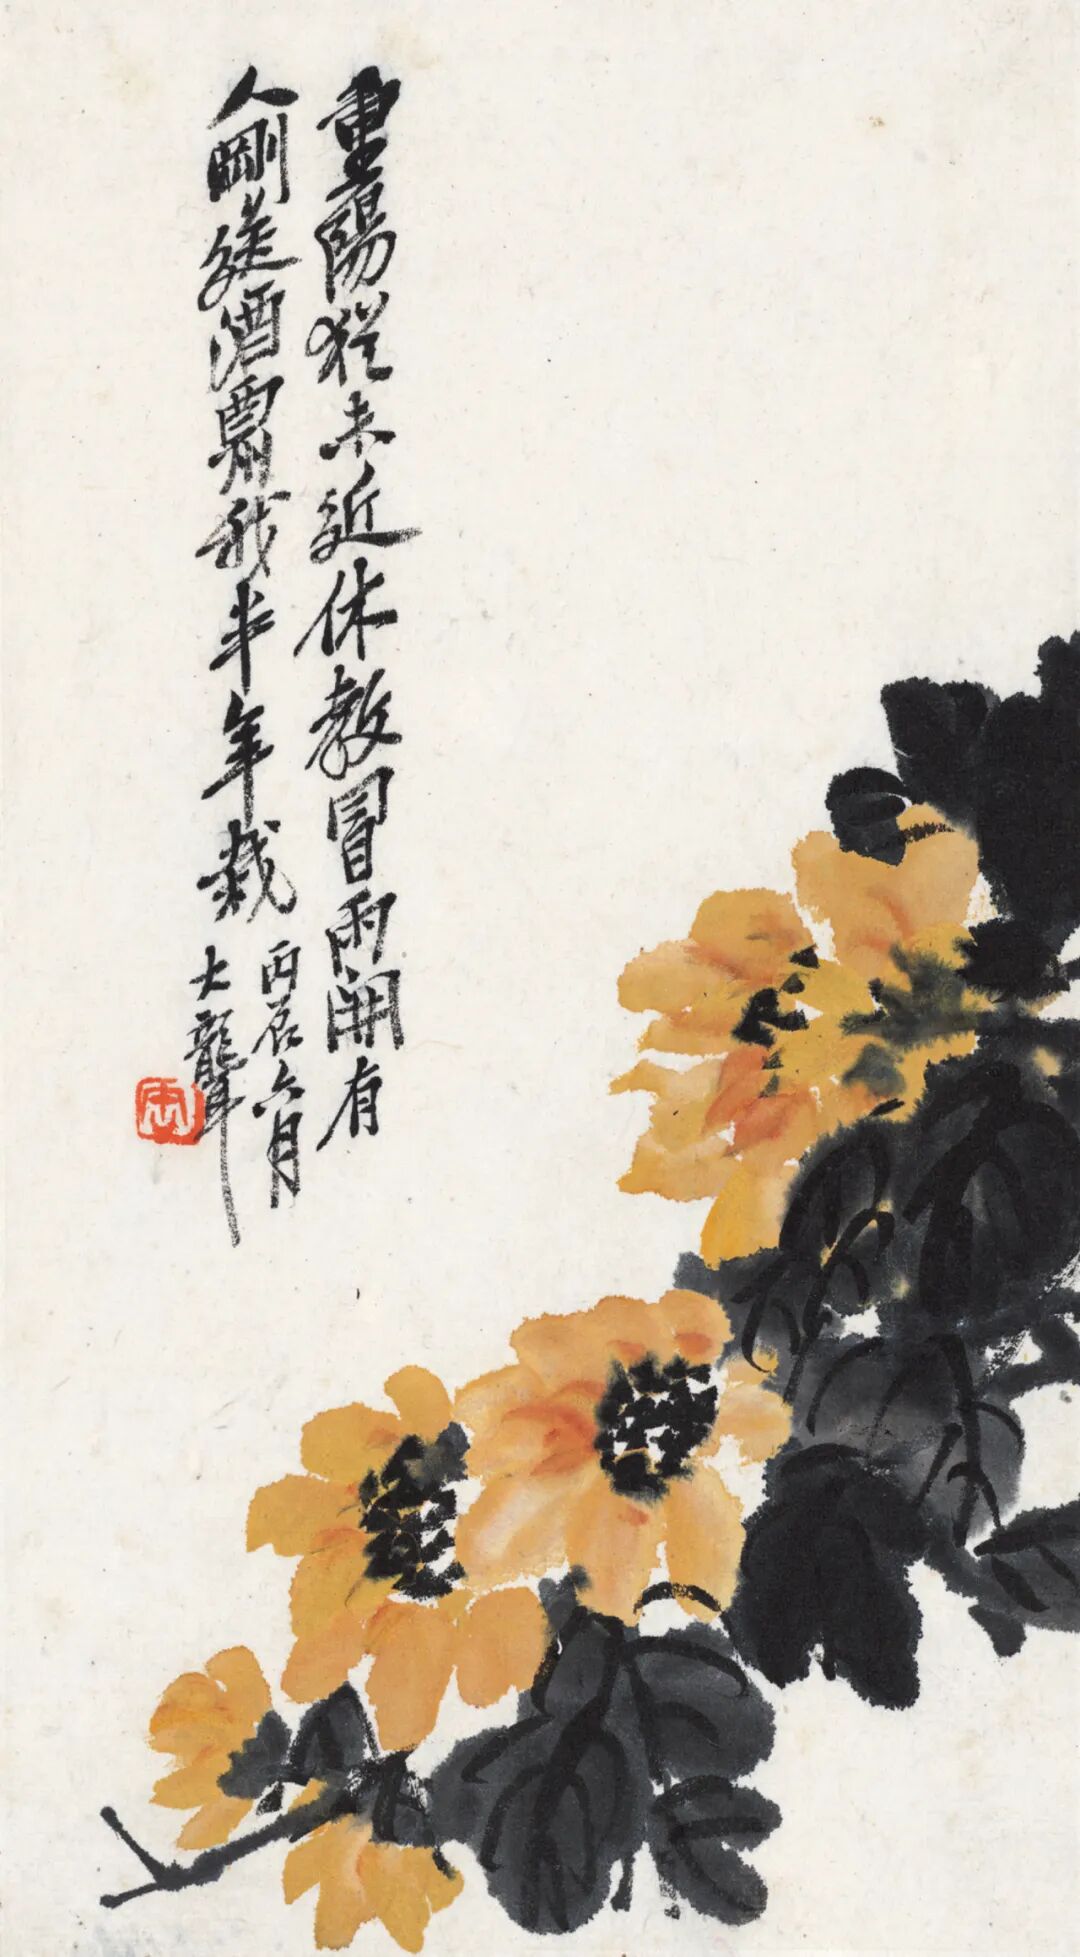 重陽猶未近休教冒雨開有
人剛送酒我半年栽
丙辰六月
大聾